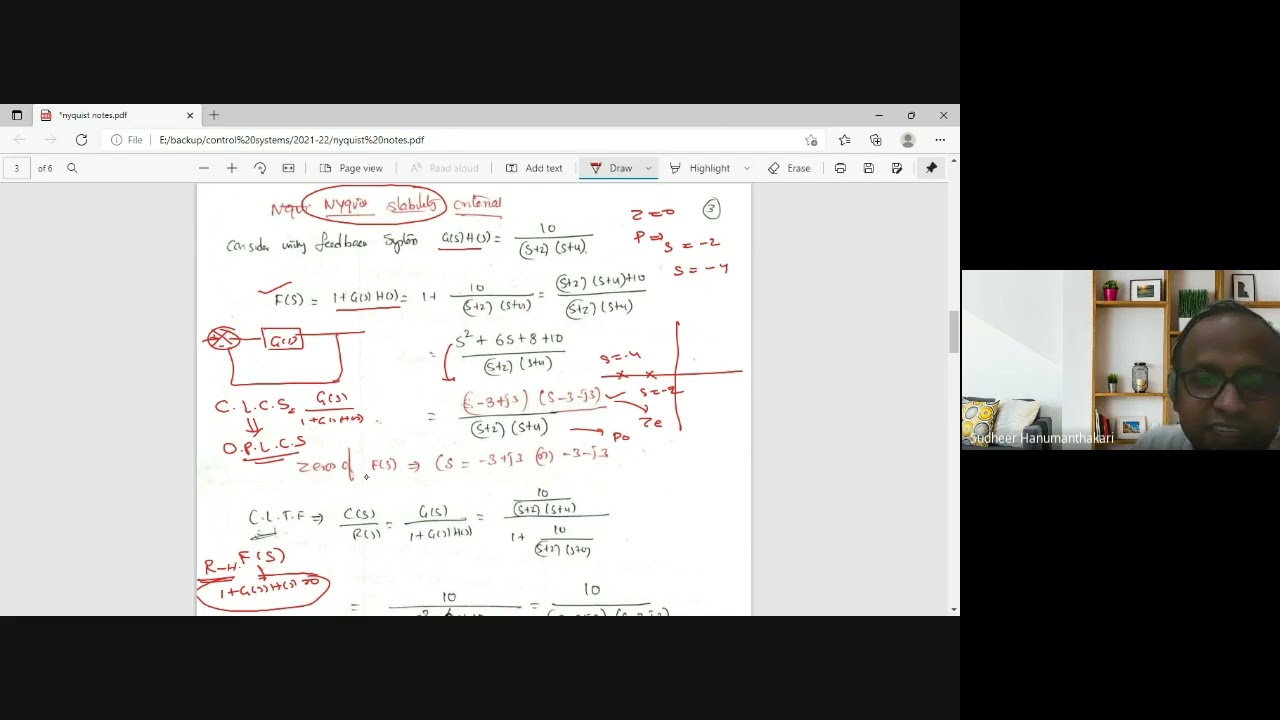 *nyquist notes.pdf
File E:/backup/control%20systems/2021-22/nyquist%20notes.pdf
3 of 6 Page view Read aloud Add text Draw Highlight Erase
Nyquist stability criteria
3
Z=0
P ⇒ s = -2
s = -4
Consider unity feedback System G(s)H(s) = 10 / (s+2)(s+4)
F(s) = 1+G(s)H(s) = 1 + 10 / (s+2)(s+4) = (s+2)(s+4)+10 / (s+2)(s+4)
G(s)
= s² + 6s + 8 + 10 / (s+2)(s+4)
s=-4
s=-2
C.L.C.S = G(s) / 1+G(s)H(s)
= (s-3+j3)(s-3-j3) / (s+2)(s+4)
Ze
Po
O.P.L.C.S
zeros of F(s) ⇒ (s = -3+j3 (or) -3-j3
C.L.T.F ⇒ C(s) / R(s) = G(s) / 1+G(s)H(s) = 10 / (s+2)(s+4) / 1 + 10 / (s+2)(s+4)
R-H. F(s)
1+G(s)H(s)=0
= 10 = 10
Sudheer Hanumanthakari